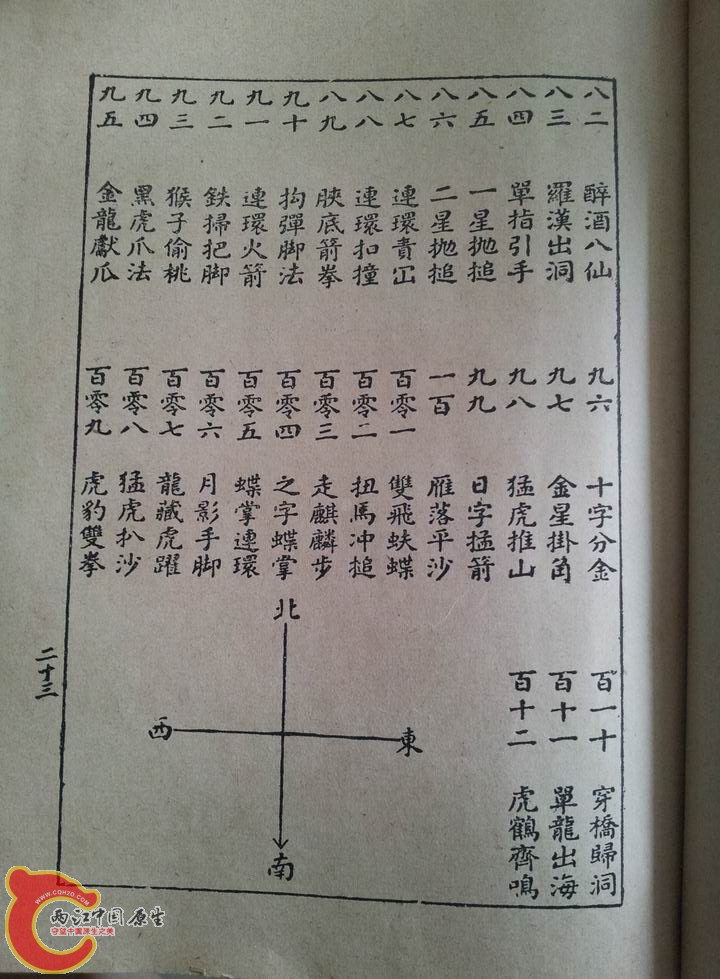 八二 醉酒八仙
八三 羅漢出洞
八四 單指引手
八五 一星拋搥
八六 二星拋搥
八七 連環責冚
八八 連環扣撞
八九 脥底箭拳
九十 抅彈脚法
九一 連環火箭
九二 鉄掃把脚
九三 猴子偷桃
九四 黑虎爪法
九五 金龍獻爪
九六 十字分金
九七 金星掛角
九八 猛虎推山
九九 日字掹箭
一百 雁落平沙
百零一 雙飛蚨蝶
百零二 扭馬冲搥
百零三 走麒麟步
百零四 之字蝶掌
百零五 蝶掌連環
百零六 月影手脚
百零七 龍藏虎躍
百零八 猛虎扒沙
百零九 虎豹雙拳
百一十 穿橋歸洞
百十一 單龍出海
百十二 虎鶴齊鳴
北
西
東
南
二十三
WWW.CQH2O.COM
两江中国原生
守望中国原生之美